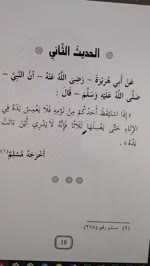 الحديث الثاني
عَنْ أَبِي هُرَيْرَةَ – رَضِيَ اللَّهُ عَنْهُ – أَنَّ النَّبِيَّ –
صَلَّى اللَّهُ عَلَيْهِ وَسَلَّمَ – قَالَ :
«إِذَا اسْتَيْقَظَ أَحَدُكُمْ مِنْ نَوْمِهِ فَلَا يَغْمِسْ يَدَهُ فِي
الإِنَاءِ حَتَّى يَغْسِلَهَا ثَلَاثًا فَإِنَّهُ لَا يَدْرِي أَيْنَ بَاتَتْ
يَدُهُ»
أَخْرَجَهُ مُسْلِمٌ(١)
مسلم رقم (٢٧٨).
16